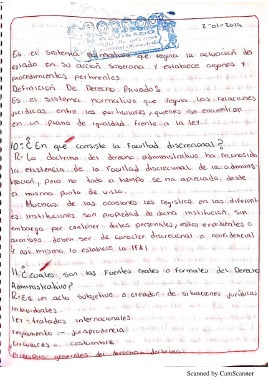 2-01-2019
Es el sistema normativo que regula la actuación del
estado en su acción soberana y establece organos y
procedimientos pertinentes.
Definición De Derecho Privado?
Es el sistema normativo que regula las relaciones
jurídicas entre los particulares, quienes se encuentran
en un plano de igualdad frente a la ley.
10-¿En que consiste la Facultad discrecional?
R- La doctrina del derecho administrativo ha reconocido
la existencia de la Facultad discrecional de la adminis-
tración, pero no todo el tiempo se ha apreciado desde
el mismo punto de vista.
Muchas de las ocasiones los registros en las diferent
es instituciones son propiedad de dicha institución sin
embargo por contener datos personales, estos expedientes o
procesos, deben ser de carácter discrecional o confidencial
y así mismo lo establece la IFAI
11.¿Cuales son las Fuentes reales o formales del Derecho
Administrativo?
R- Es un acto subjetivo o creador de situaciones jurídicas
individuales.
ley- tratados internacionales.
reglamento - jurisprudencia
circulares - costumbre
principios generales de derecho doctrina
Scanned by CamScanner